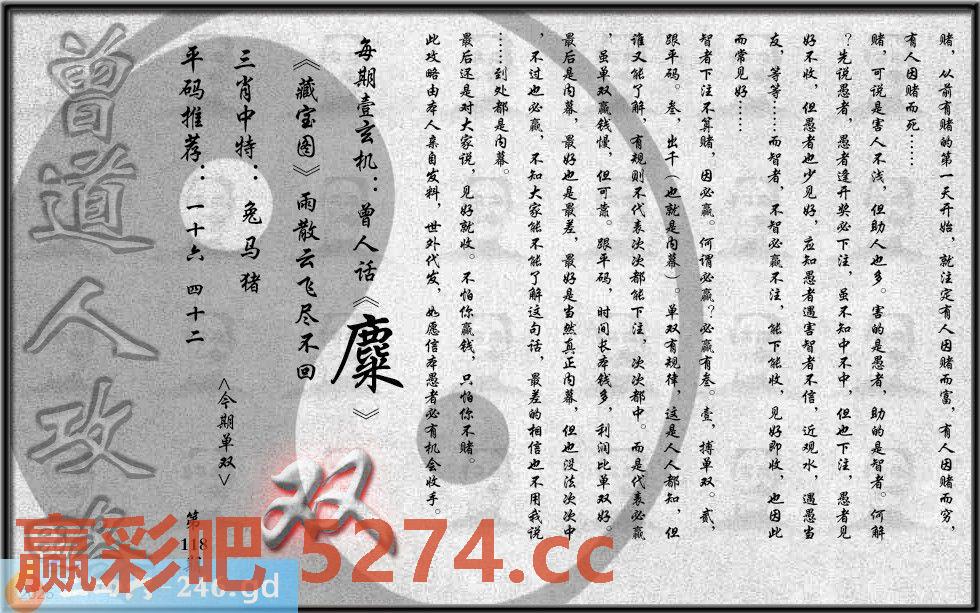 赌，从前有赌的第一天开始，就注定有人因赌而富，有人因赌而穷，
有人因赌而死……
赌，可说是害人不浅，但助人也多。害的是愚者，助的是智者。何解
？先说愚者，愚者逢开奖必下注，虽不知中不中，但也下注，愚者见
好不收，但愚者也少见好，应知愚者遇害智者不信，近观水，遇愚当
友，等等……而智者，不智必赢不注，能下能收，见好即收，也因此
而常见好……
智者下注不算赌，因必赢。何谓必赢？必赢有叁。壹，搏单双。贰，
跟平码。叁，出千（也就是内幕）。单双有规律，这是人人都知，但
谁又能了解，有规则不代表次次都能下注，次次都中。而是代表必赢
，虽单双赢钱慢，但可靠。跟平码，时间长本钱多，利润比单双好。
最后是内幕，最好也是最差，最好是当然真正内幕，但也没法次次中
，不过也必赢，不知大家能不能了解这句话，最差的相信也不用我说
……到处都是内幕。
最后还是对大家说，见好就收。不怕你赢钱，只怕你不赌。
此攻略由本人亲自发料，世外代发，如愿信本愚者必有机会收手。
每期壹玄机：曾人话《麋》
《藏宝图》雨散云飞尽不回
三肖中特：兔马猪
平码推荐：一十六 四十二
<今期单双>
双
第118
曾道人攻
赢彩吧 5274.cc
-246.gd